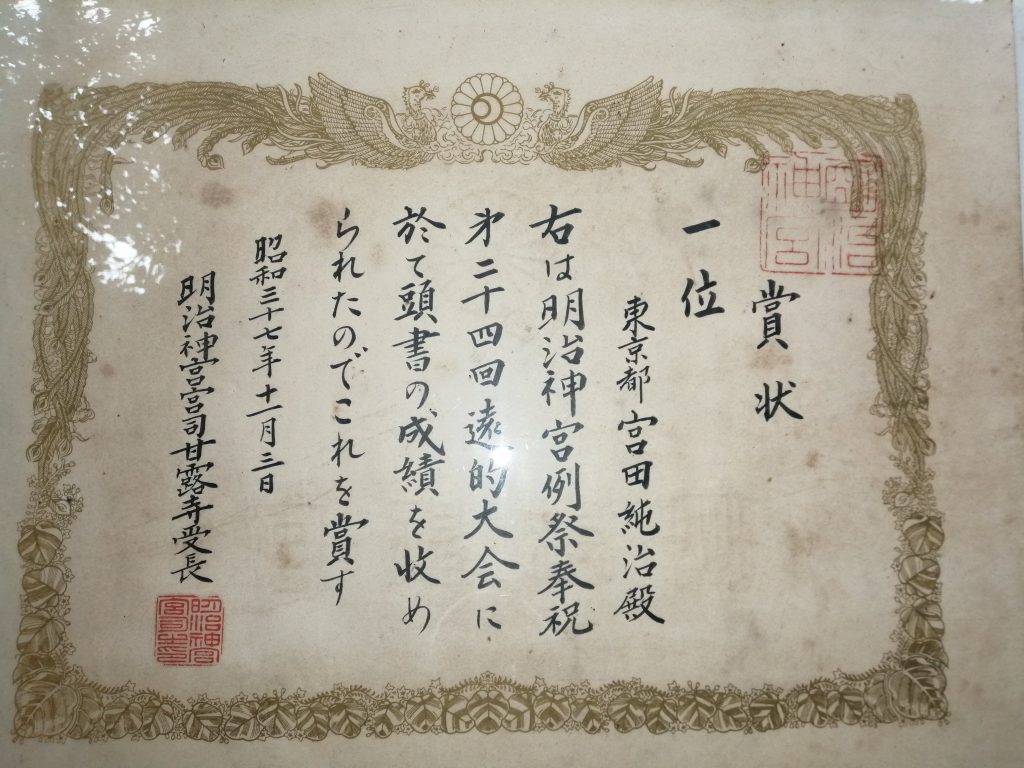 明治神宮
賞状
一位
東京都 宮田純治殿
右は明治神宮例祭奉祝
㐧二十四回遠的大会に
於て頭書の成績を収め
られたのでこれを賞す
昭和三十七年十一月三日
明治神宮宮司甘露寺受長
明治神宮